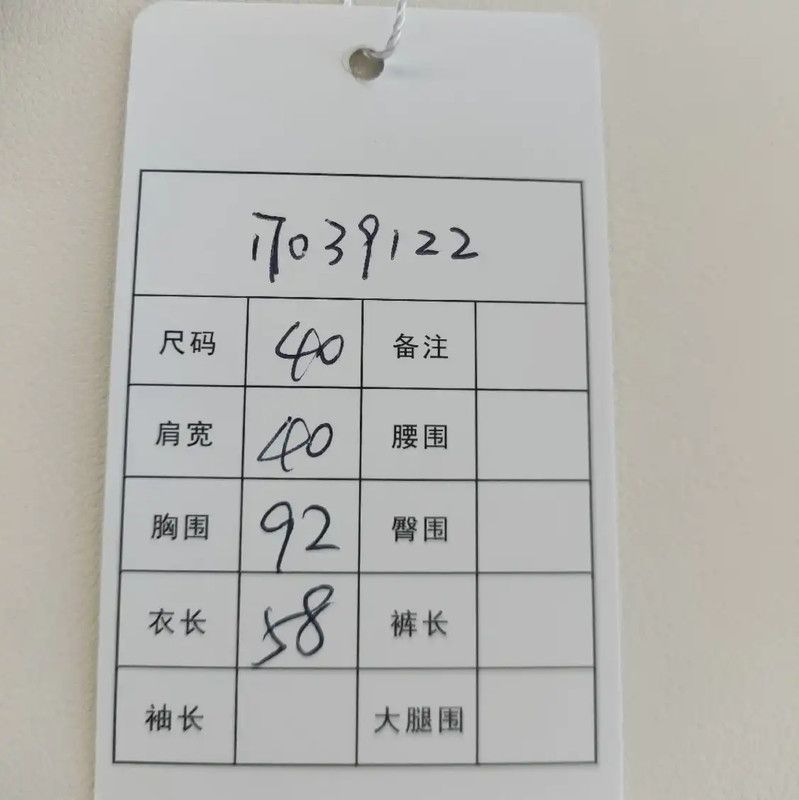 17039122
尺码 40 备注
肩宽 40 腰围
胸围 92 臀围
衣长 58 裤长
袖长 大腿围